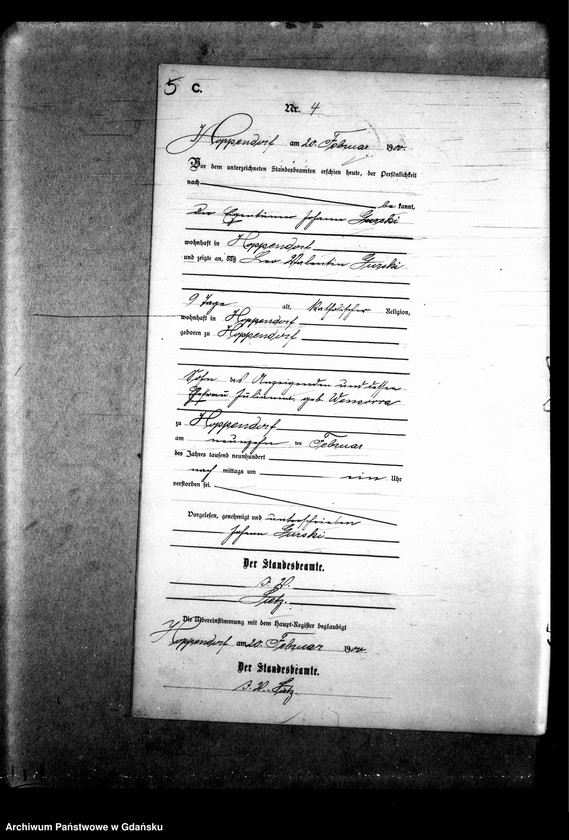 5 C.
Nr. 4
Hoppendorf am 20. Februar 1900.
Vor dem unterzeichneten Standesbeamten erschien heute, der Persönlichkeit
nach
be kannt,
der Eigentümer Johann Gurski
wohnhaft in Hoppendorf
und zeigte an, daß Leo Valentin Gurski
9 Tage alt, katholischer Religion,
wohnhaft in Hoppendorf
geboren zu Hoppendorf
Sohn des Anzeigenden und dessen
Ehefrau Julianna, geb. Wenzorra
zu Hoppendorf
am neunzehnten Februar
des Jahres tausend neunhundert
nach mittags um ein Uhr
verstorben sei.
Vorgelesen, genehmigt und unterschrieben
Johann Gurski
Der Standesbeamte.
I. V.
Die Übereinstimmung mit dem Haupt-Register beglaubigt
Hoppendorf am 20. Februar 1900
Der Standesbeamte.
I. V.
Archiwum Państwowe w Gdańsku